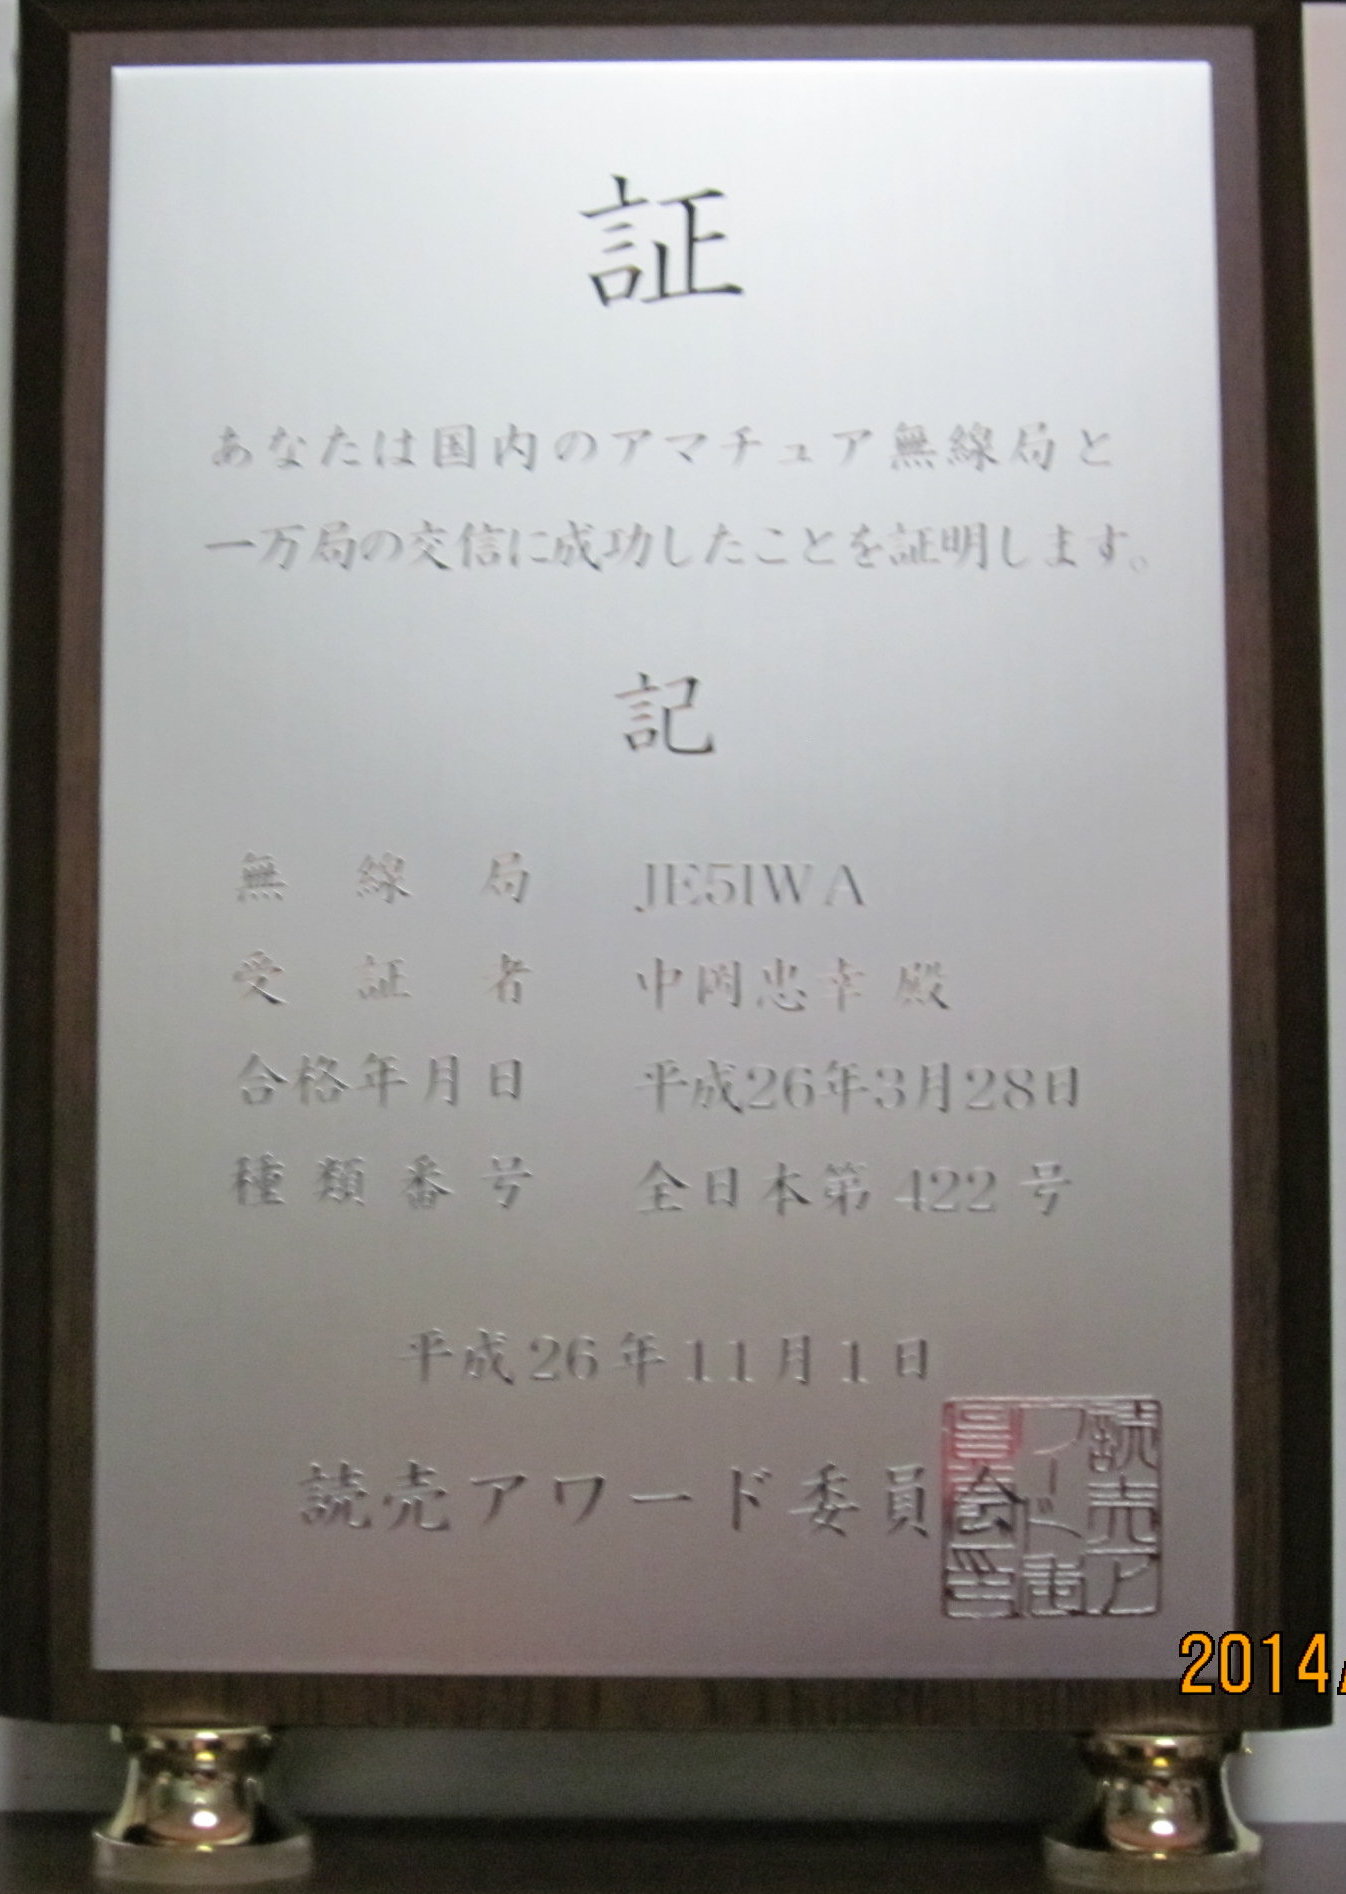 証
あなたは国内のアマチュア無線局と
一万局の交信に成功したことを証明します。
記
無線局 JE5IWA
受証者 中岡忠幸 殿
合格年月日 平成26年3月28日
種類番号 全日本第 422 号
平成26年11月1日
読売アワード委員会
読売ア
ワード委
員会印
2014/